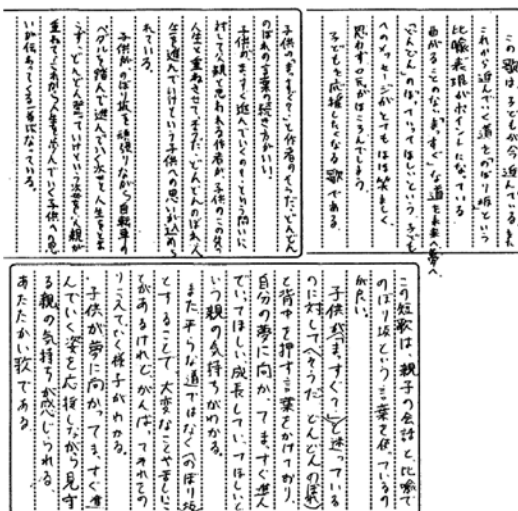 この歌は、子どもが今進んでいる、また
これから進んでいく道を「のぼり坂」という
比喩表現がポイントになっている。
曲がることのない「まっすぐ」な道を未来へ夢へ
「どんどん」のぼっていってほしいという、子ども
へのメッセージがとてもほほ笑ましく、
思わず口元がほころんでしまう。
子どもを応援したくなる歌である。
子供の「まっすぐ？」と作者の「そうだ、どんどん
のぼれ」の言葉の続き方がいい。
子供が、まっすぐ進んでいくの？という問いに
対して父親と思われる作者が、子供のこの先の
人生と重ねさせて、そうだ、どんどんのぼれ、人
生を進んでいけという子供への思いが込めら
れている。
子供がのぼり坂を頑張りながら自転車の
ペダルを踏んで進んでいく姿と、人生をとま
らず、どんどん登っていけという姿を、親が
重ねて、これから人生を歩んでいく子供への思
いが伝わってくる一首になっている。
この短歌は、親子の会話と比喩で
のぼり坂という言葉を使っているの
が良い。
子供が「まっすぐ？」と迷っている
のに対して「そうだ、どんどんのぼれ」
と背中を押す言葉をかけており、
自分の夢に向かってまっすぐ進ん
でいってほしい、成長していってほしいと
いう親の気持ちがわかる。
また平らな道ではなく「のぼり坂」
とすることで、大変なことや苦しいこ
とがあるけれど、がんばってそれをの
りこえていく様子がわかる。
子供が夢に向かってまっすぐ進
んでいく姿を応援しながら見守
る親の気持ちが感じられる、
あたたかい歌である。